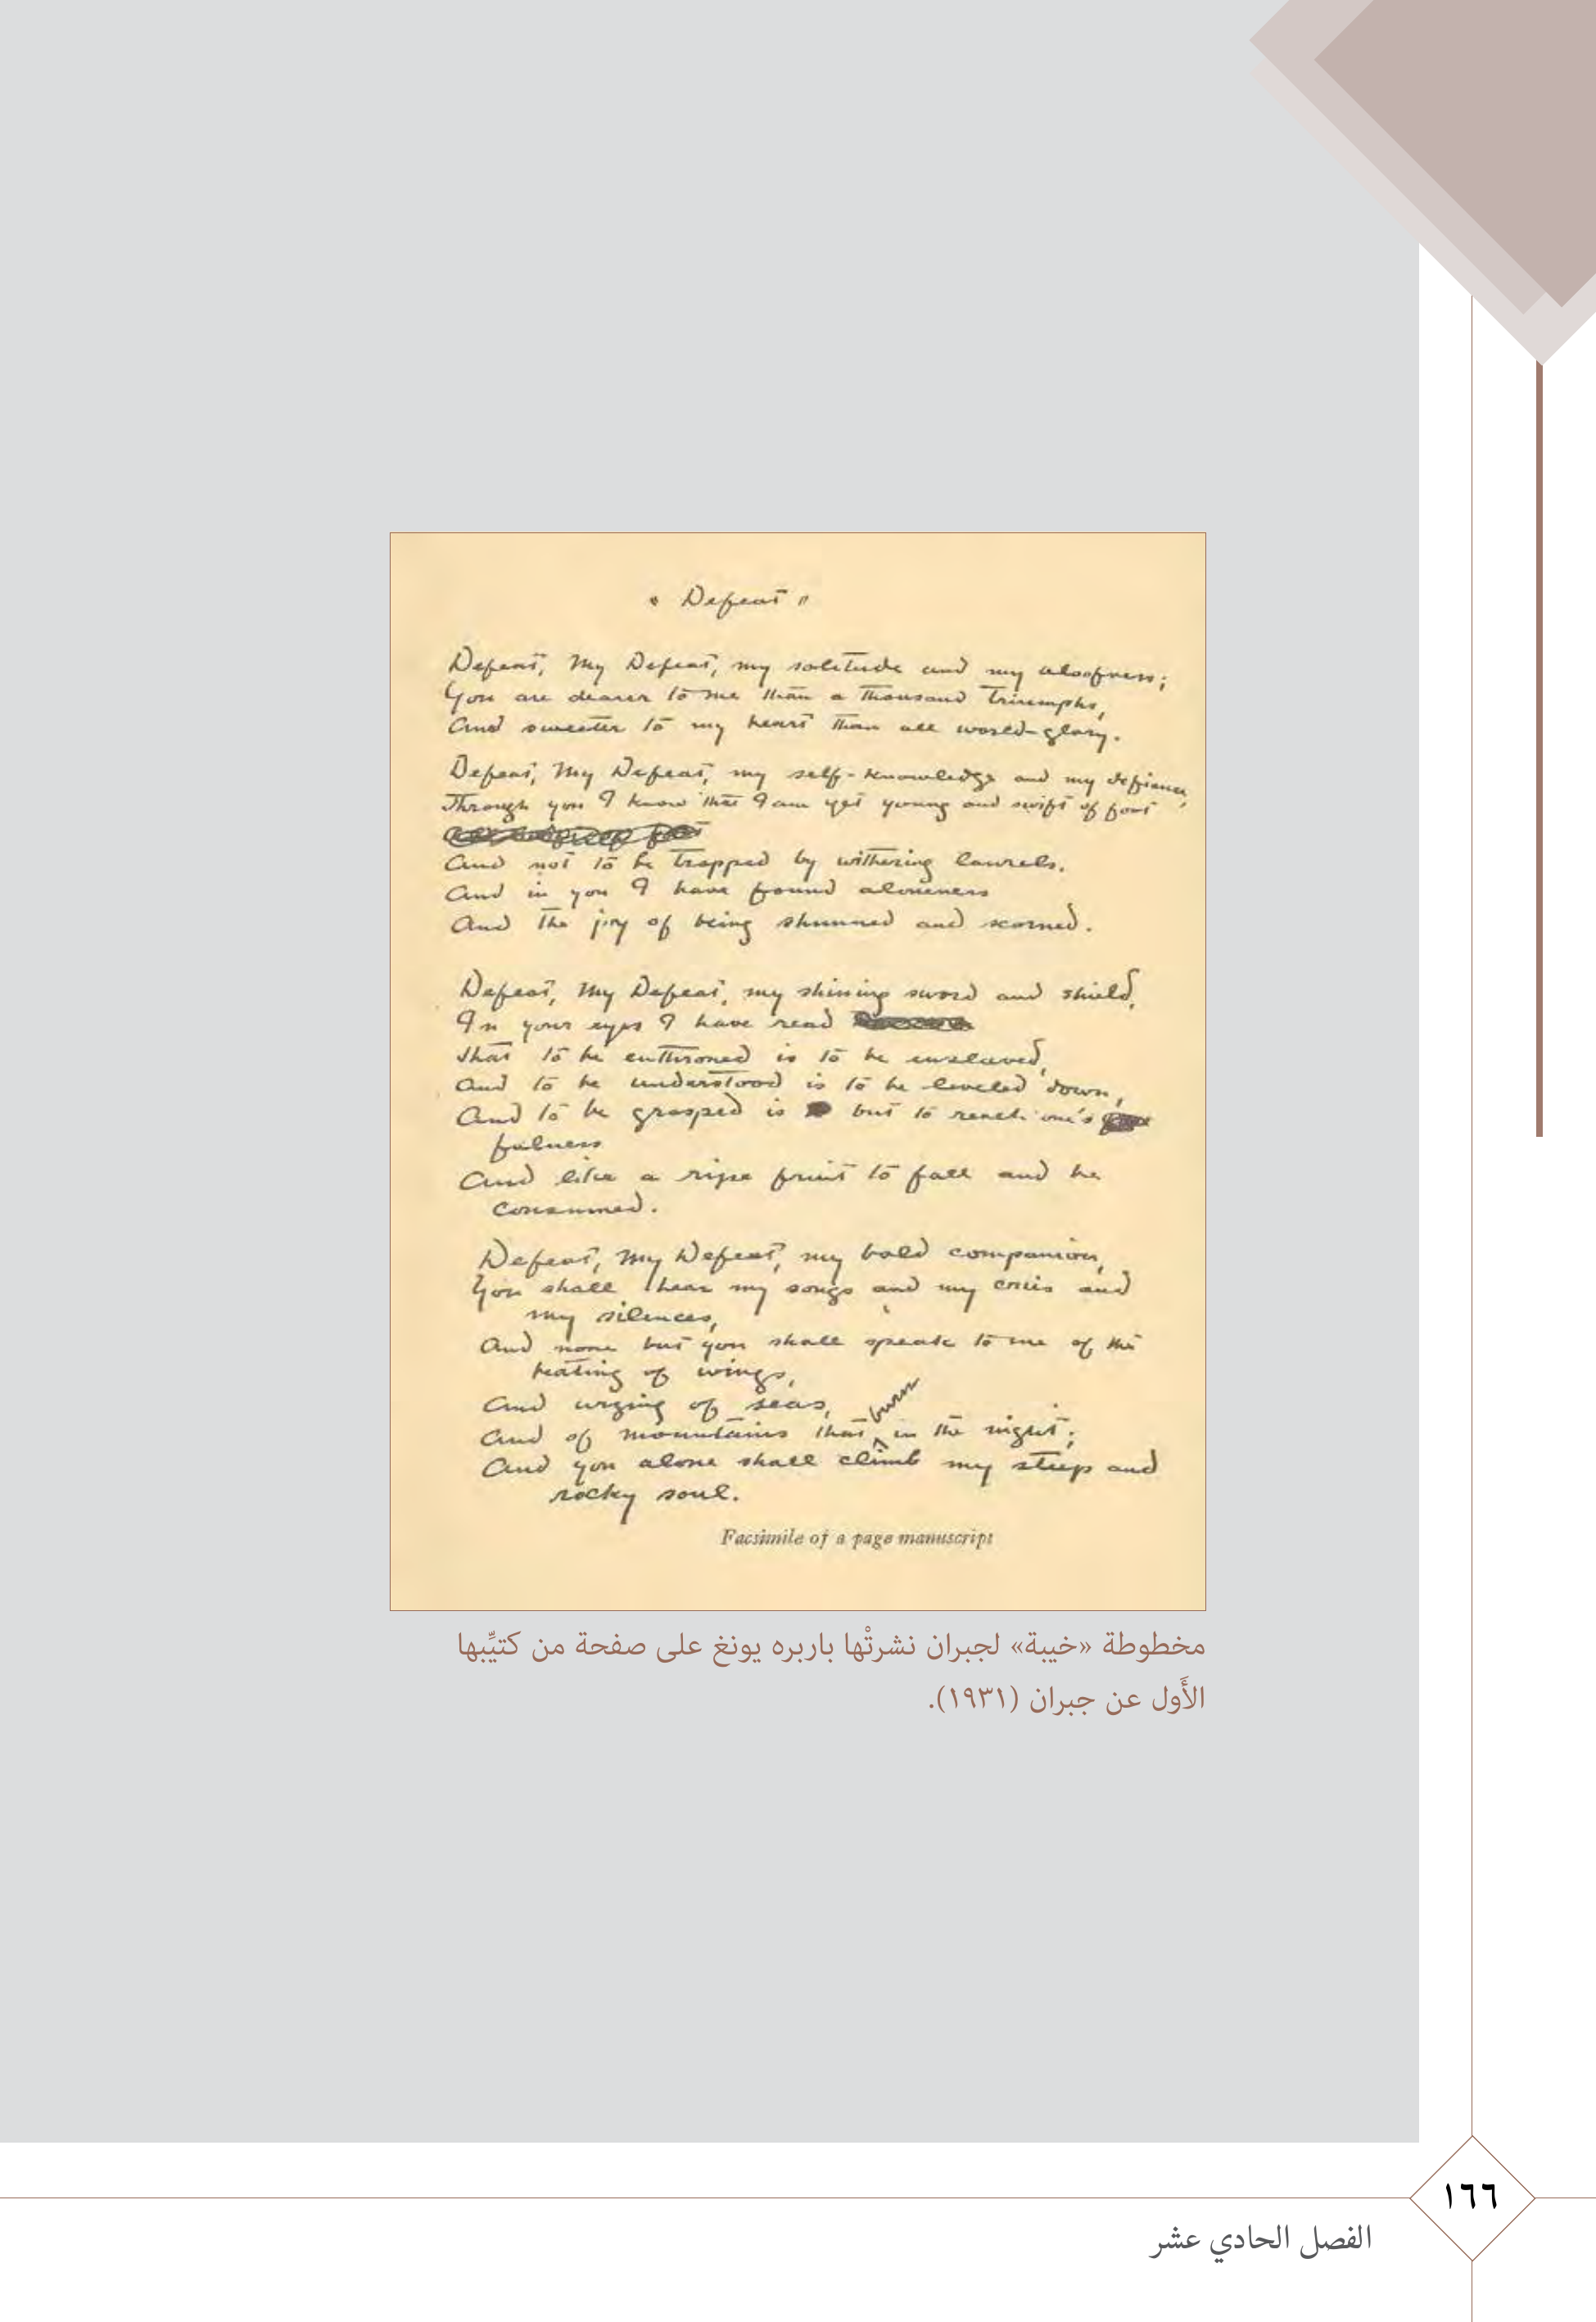 " Defeat "
Defeat, My Defeat, my solitude and my aloofness;
You are dearer to me than a thousand triumphs,
And sweeter to my heart than all world-glory.
Defeat, My Defeat, my self-knowledge and my defiance,
Through you I know that I am yet young and swift of foot
And not to be trapped by withering laurels.
And in you I have found aloneness
And the joy of being shunned and scorned.
Defeat, My Defeat, my shining sword and shield,
In your eyes I have read
That to be enthroned is to be enslaved,
And to be understood is to be leveled down,
And to be grasped is but to reach one's
fulness
And like a ripe fruit to fall and be
consumed.
Defeat, My Defeat, my bold companion,
You shall hear my songs and my cries and
my silences,
And none but you shall speak to me of the
beating of wings,
And urging of seas,
And of mountains that burn in the night;
And you alone shall climb my steep and
rocky soul.
Facsimile of a page manuscript
مخطوطة «خيبة» لجبران نشرتْها باربره يونغ على صفحة من كتيِّبها
الأَول عن جبران (١٩٣١).
١٦٦
الفصل الحادي عشر